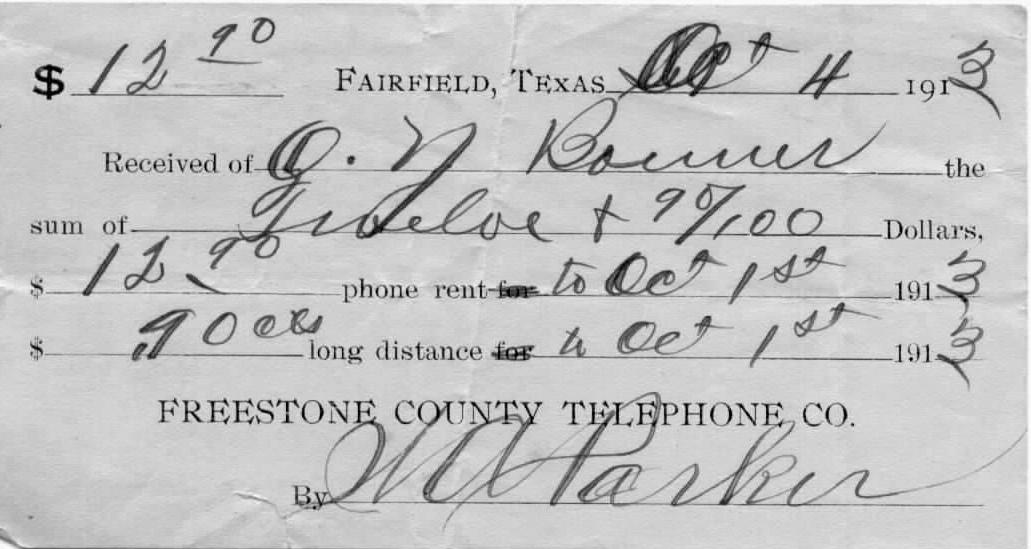 $ 12 90 FAIRFIELD, TEXAS Oct 4 1913
Received of G. N Bonner the
sum of Twelve + 90/100 Dollars,
$ 12.90 phone rent for to Oct 1st 1913
$ .90 cts long distance for to Oct 1st 1913
FREESTONE COUNTY TELEPHONE CO.
By Parker